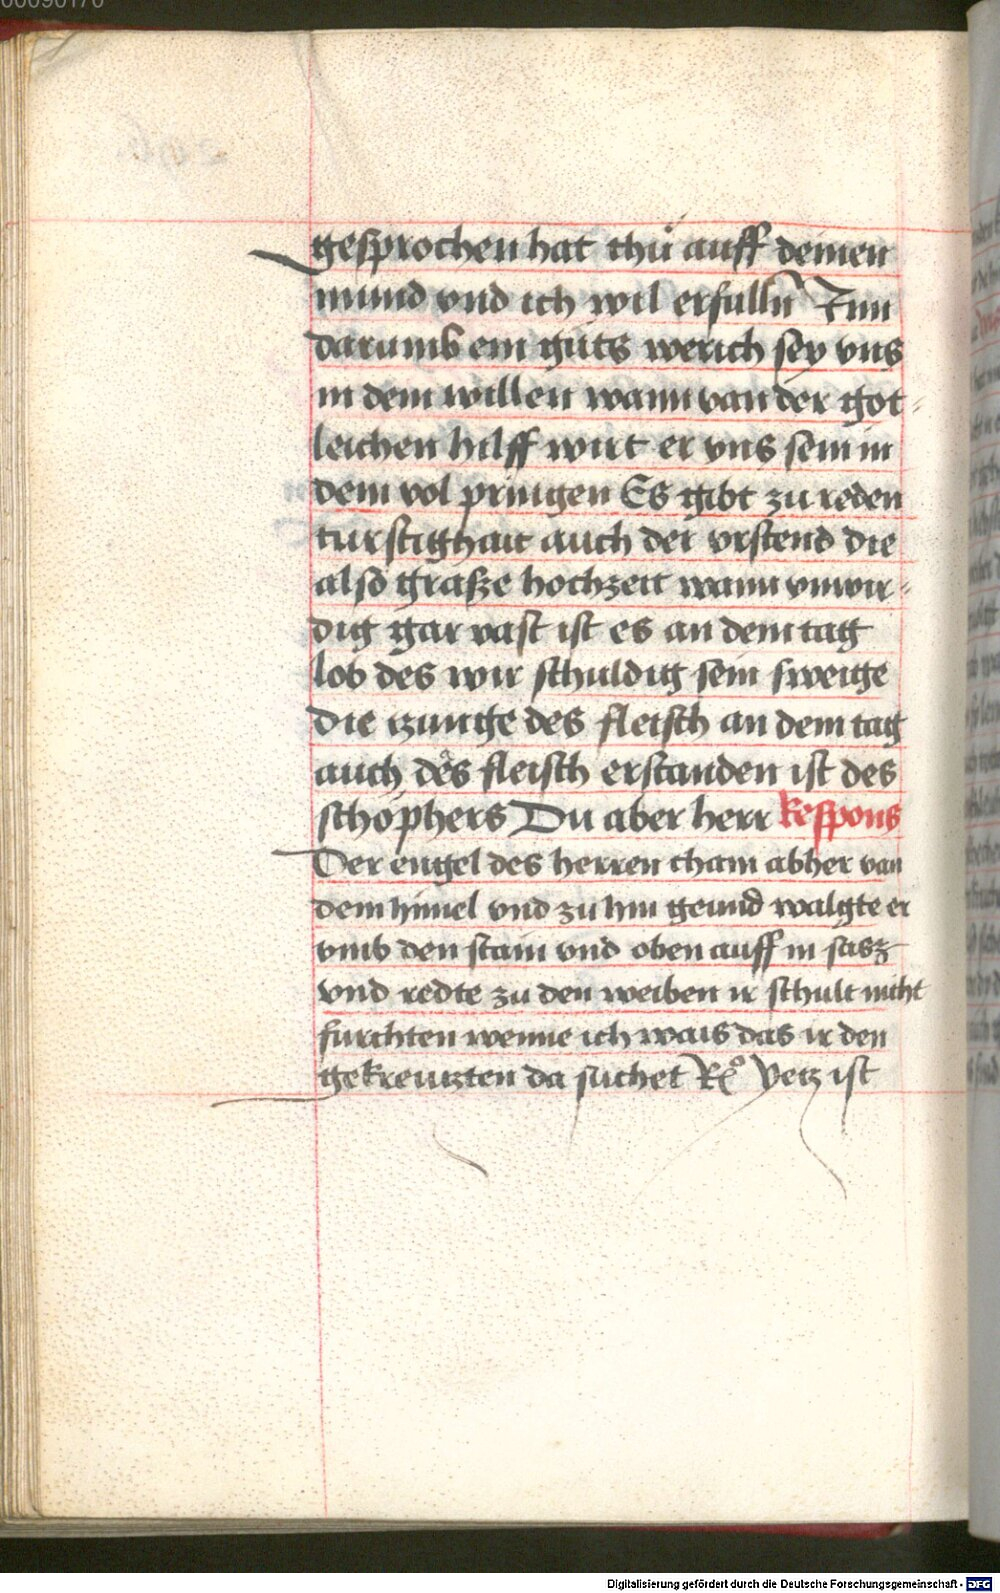 00090170
gesprochen hat thů auff deinen
mund vnd ich wil erfulln̄ Inn
darumb ein gůts werich sey vns
in dem willen wann van der got-
leichen hilff wirt er vns sein in
dem vol pringen Es gibt zu reden
turstighait auch der vrstend die
also grasze hochzeit wann vnwir-
dig gar vast ist es an dem tag
lob des wir schuldig sein sweige
die zunge des fleisch an dem tag
auch des fleisch erstanden ist des
schophers Du aber herr Respons
Der engel des herren cham abher van
dem himel vnd zu hin geund walgte er
vmb den stain vnd oben auff in sasz
vnd redte zu den weiben ir schult nicht
furchten wenne ich wais das ir den
gekreutzten da suchet Rx Yetz ist
Digitalisierung gefördert durch die Deutsche Forschungsgemeinschaft - DFG